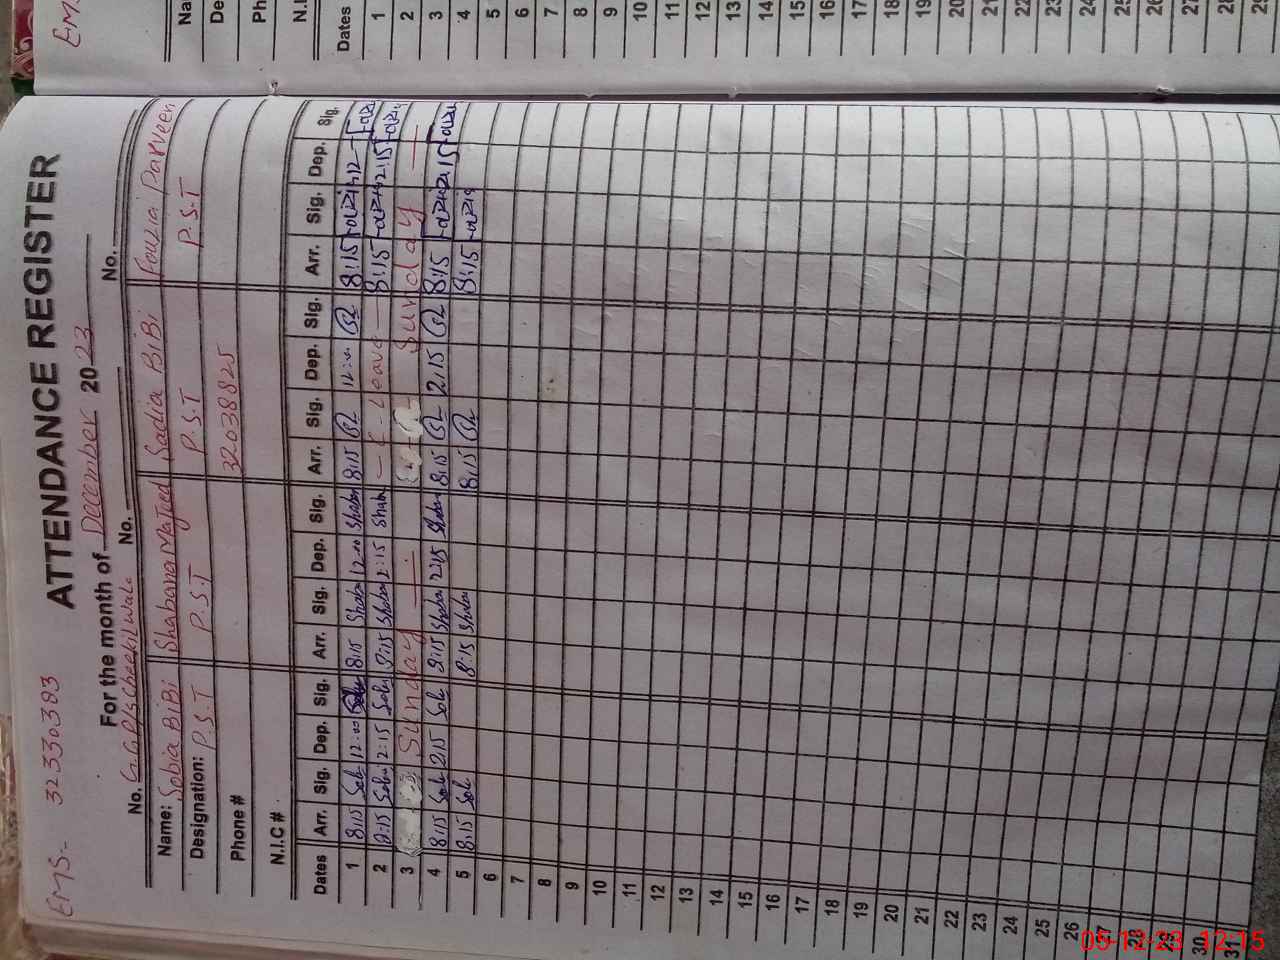 EMS- 32330383
ATTENDANCE REGISTER
For the month of December 2023
No. G.G.P/S Cheekil Wala No. No.
Name: Sobia BiBi Shabana Majeed Sadia BiBi Fouzia Parveen
Designation: P.S.T P.S.T P.S.T P.S.T
Phone# 32038825
N.I.C#
Dates Arr. Sig. Dep. Sig. Arr. Sig. Dep. Sig. Arr. Sig. Dep. Sig. Arr. Sig. Dep. Sig.
1 8:15 Sob 12:00 8:15 Shaba 12:00 Shaba 8:15 12:00 8:15 12
2 8:15 Sobi 2:15 Sobi 8:15 Shaba 2:15 Shaba — C - Leave — 8:15 2:15
3 Sunday — Sunday —
4 8:15 Sob 2:15 Sob 8:15 Shaba 2:15 Shaba 8:15 2:15 8:15 2:15
5 8:15 Sob 8:15 Shaba 8:15 8:15
6
7
8
9
10
11
12
13
14
15
16
17
18
19
20
21
22
23
24
25
26
27
28
29
30
31
EMS
Na
De
Ph
N.I
Dates
1
2
3
4
5
6
7
8
9
10
11
12
13
14
15
16
17
18
19
20
21
22
23
24
25
26
27
28
29
05-12-23 12:15